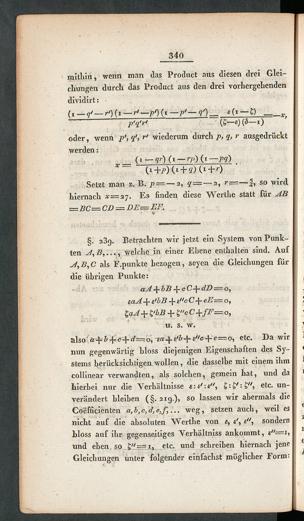 340
mithin, wenn man das Product aus diesen drei Glei-
chungen durch das Product aus den drei vorhergehenden
dividirt:
(1−q′−r′)(1−r′−p′)(1−p′−q′) / p′q′r′ = ε(1−ζ) / (ζ−ε)(δ−1) = −x,
oder, wenn p′, q′, r′ wiederum durch p, q, r ausgedrückt
werden:
x = (1−qr)(1−rp)(1−pq) / (1+p)(1+q)(1+r) .
Setzt man z. B. p=−2, q=−2, r=− , so wird
hiernach x=27. Es finden diese Werthe statt für AB
=BC=CD=DE=EF.
§. 239. Betrachten wir jetzt ein System von Punk-
ten A, B,..., welche in einer Ebene enthalten sind. Auf
A, B, C als F.punkte bezogen, seyen die Gleichungen für
die übrigen Punkte:
aA+bB+cC+dD=0,
εaA+ε′bB+ε″cC+eE=0,
ζaA+ζ′bB+ζ″cC+fF=0,
u. s. w.
also a+b+c+d=0, εa+ε′b+ε″c+e=0, etc. Da wir
nun gegenwärtig bloss diejenigen Eigenschaften des Sy-
stems berücksichtigen wollen, die dasselbe mit einem ihm
collinear verwandten, als solchen, gemein hat, und da
hierbei nur die Verhältnisse ε:ε′:ε″, ζ:ζ′:ζ″, etc. un-
verändert bleiben (§. 219.), so lassen wir abermals die
Coëfficienten a, b, c, d, e, f,... weg, setzen auch, weil es
nicht auf die absoluten Werthe von ε, ε′, ε″, sondern
bloss auf ihr gegenseitiges Verhältniss ankommt, ε″=1,
und eben so ζ″=1, etc. und schreiben hiernach jene
Gleichungen unter folgender einfachst möglicher Form: